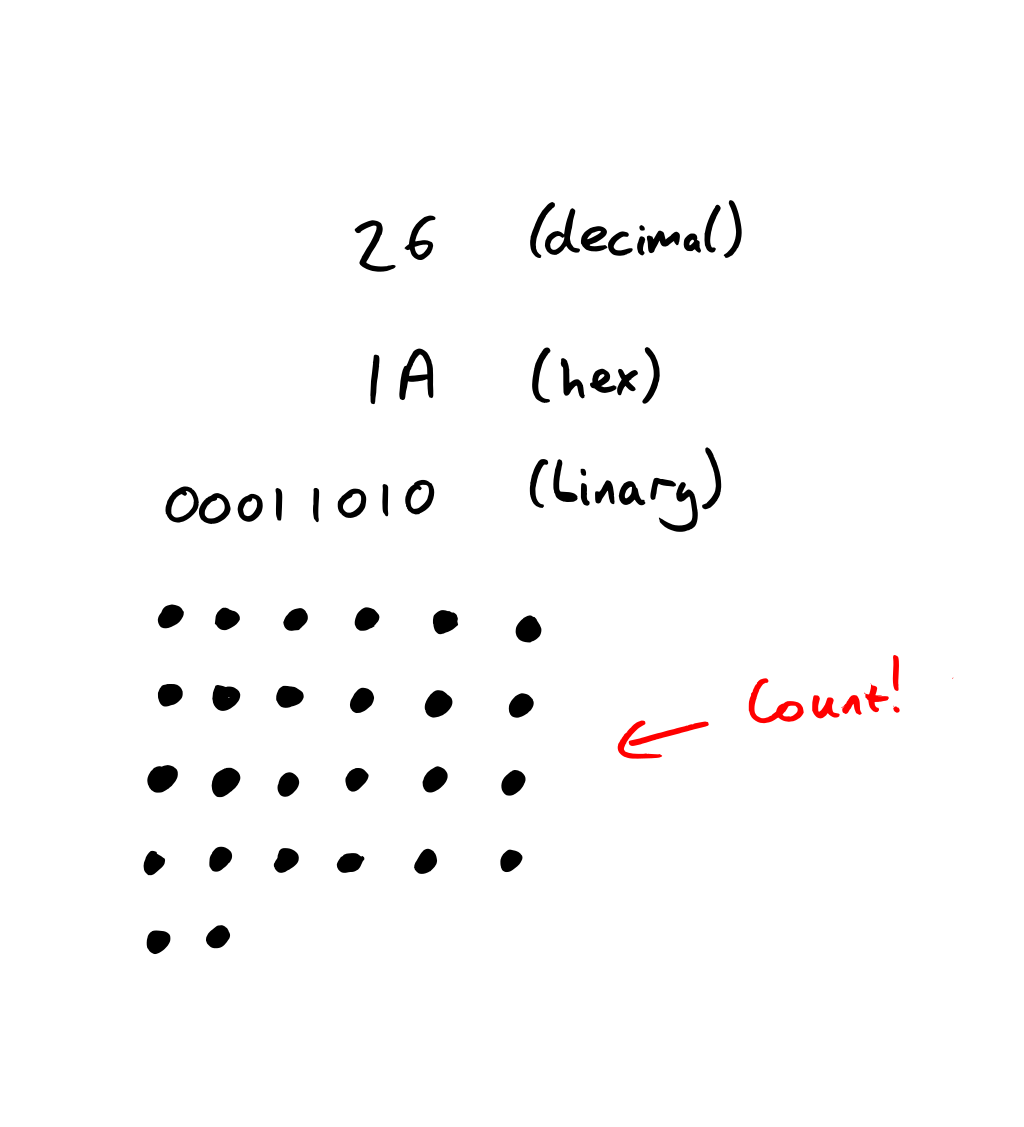 26 (decimal)
1A (hex)
00011010 (binary)
Count!